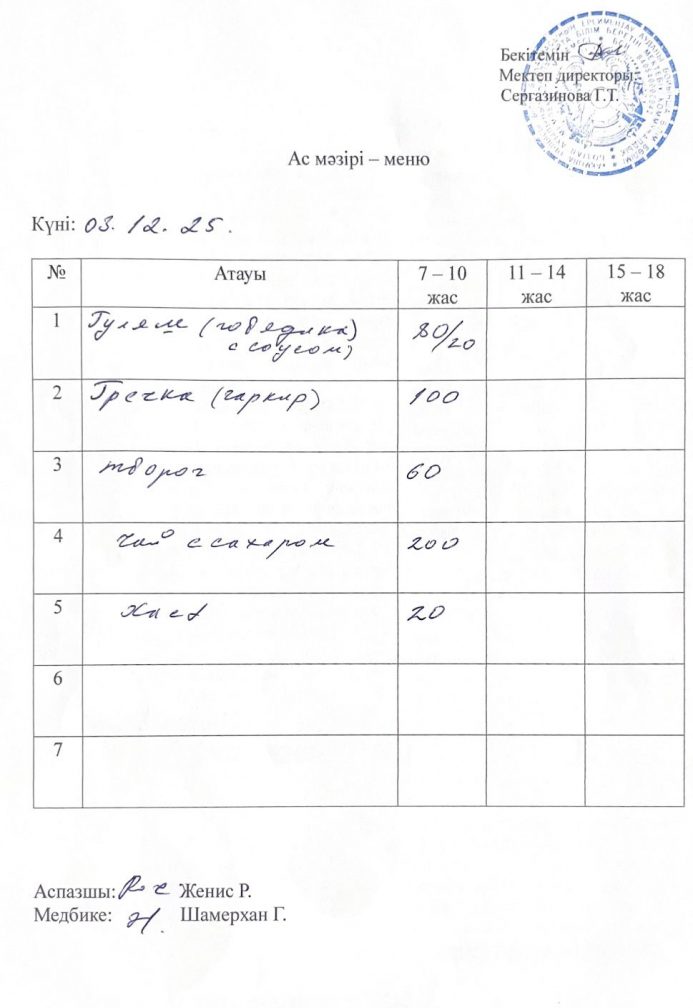 Бекітемін
Мектеп директоры:
Сергазинова Г.Т.
Ас мәзірі – меню
Күні: 03. 12. 25.
№ Атауы 7 – 10 жас 11 – 14 жас 15 – 18 жас
1 Гуляш (говядина) 80/20
с соусом)
2 Гречка (гарнир) 100
3 творог 60
4 чай с сахаром 200
5 хлеб 20
6
7
Аспазшы: Женис Р.
Медбике: Шамерхан Г.